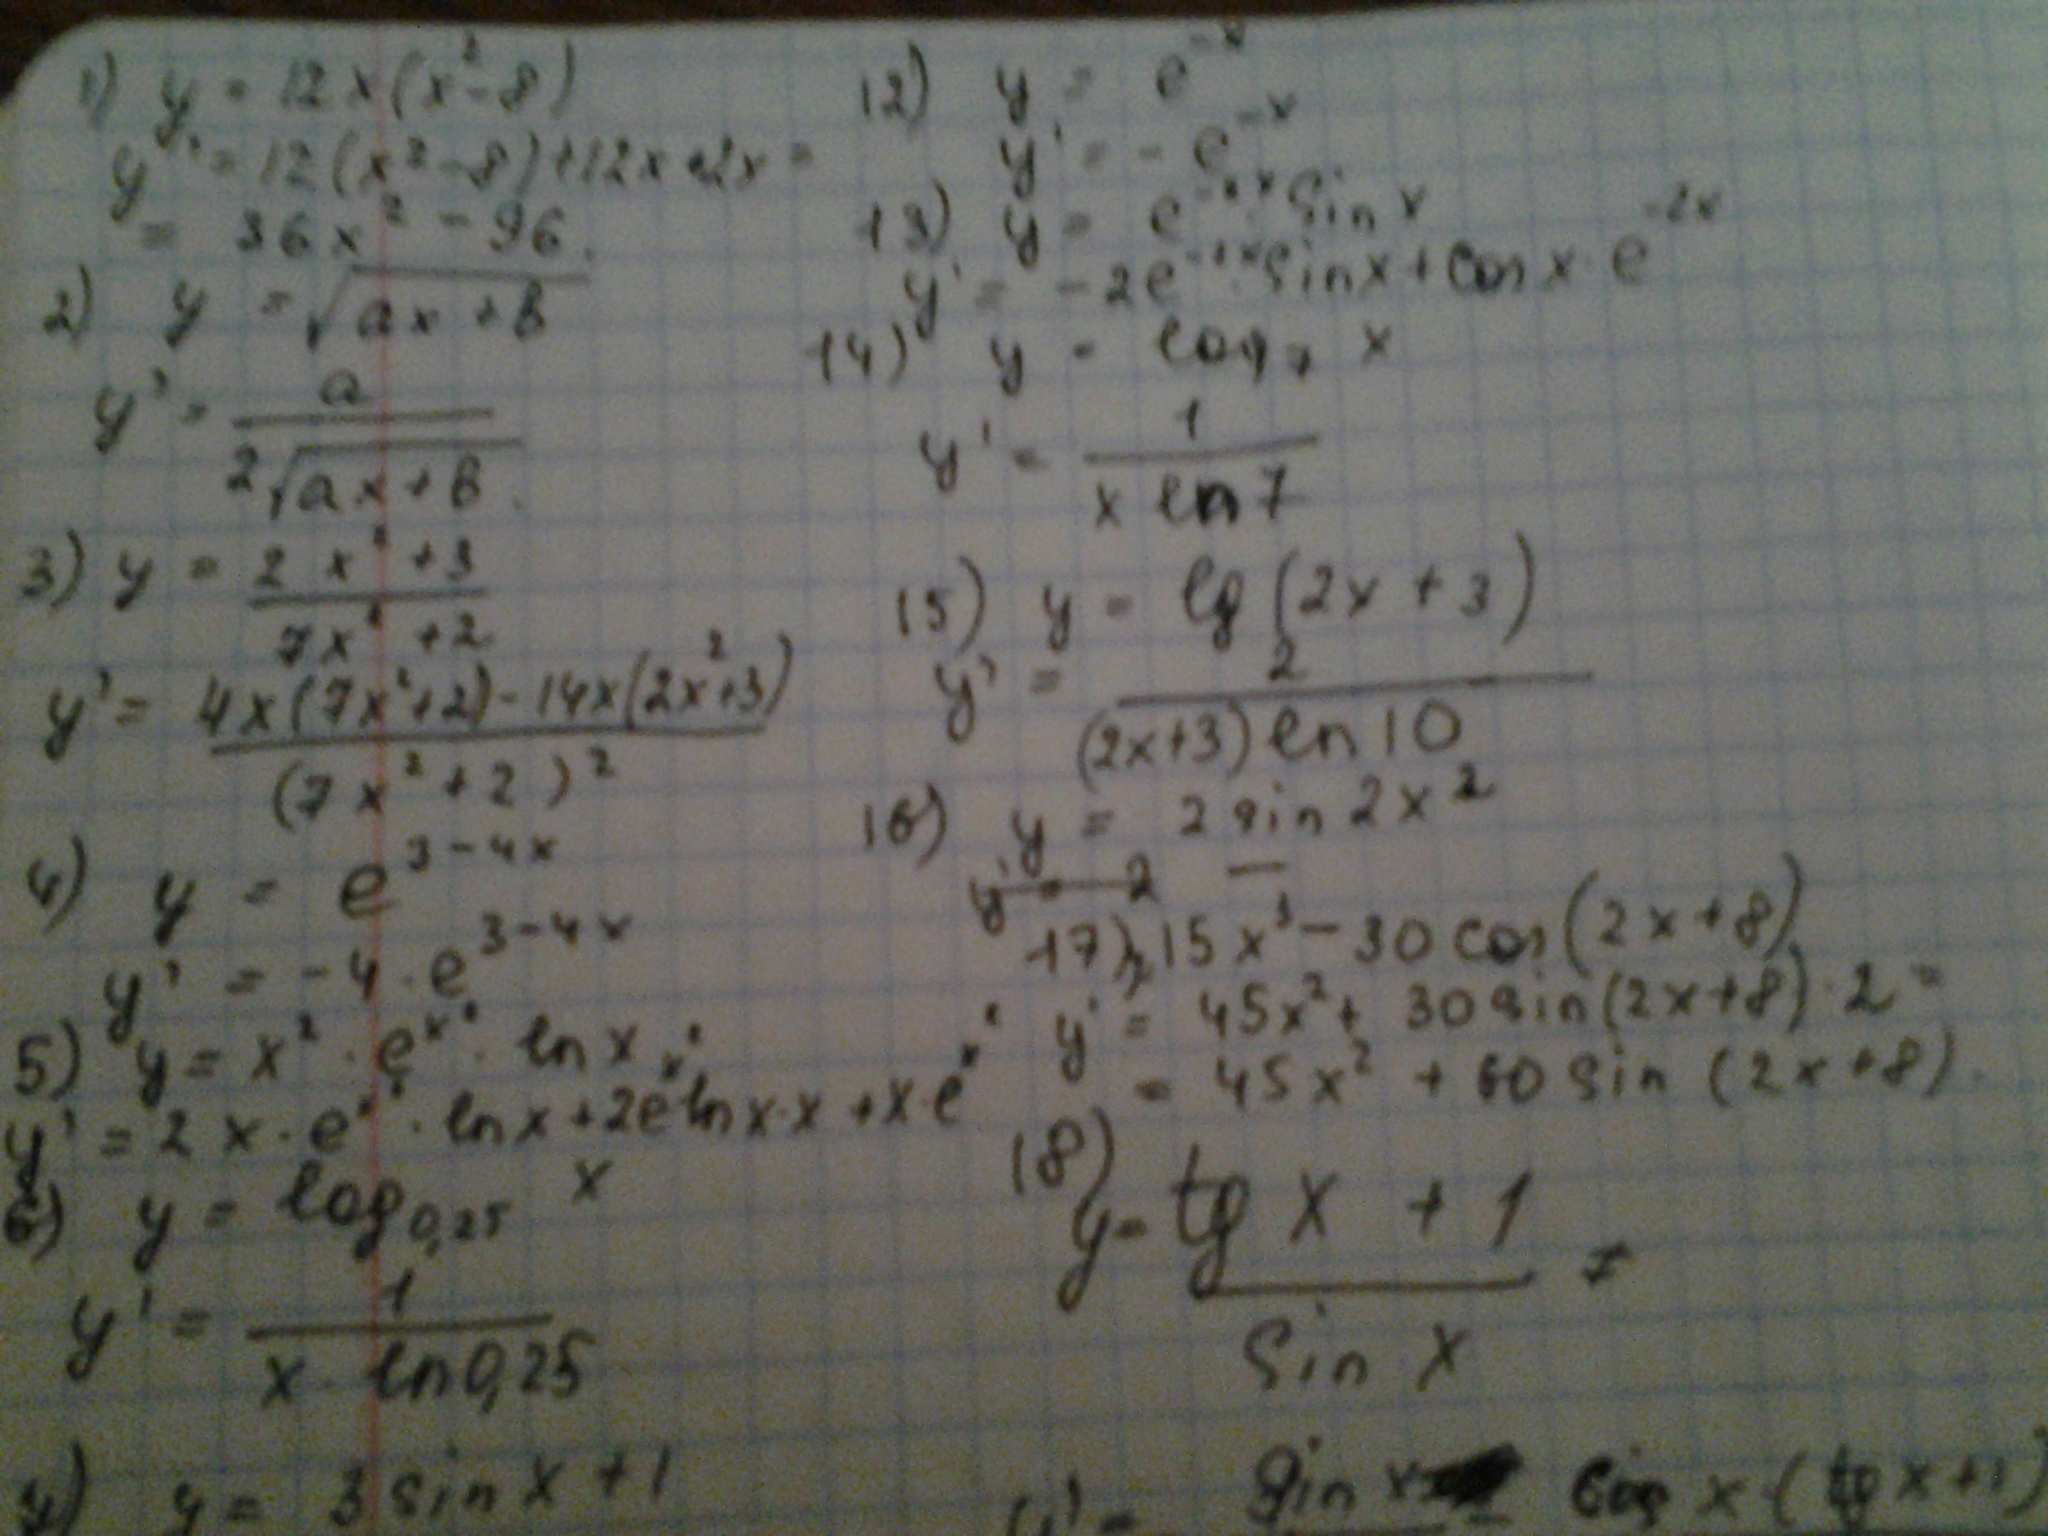 1) y = 12x(x²-8)
y' = 12(x²-8)+12x·2x =
= 36x² - 96.
2) y = √(ax+b)
y' = a / 2√(ax+b).
3) y = 2x²+3 / 7x²+2
y' = 4x(7x²+2)-14x(2x²+3) / (7x²+2)²
4) y = e^(3-4x)
y' = -4·e^(3-4x)
5) y = x²·e^(x²)·ln x
y' = 2x·e^(x²)·ln x+2e^(x²) ln x·x +x·e^(x²)
6) y = log_0,25 x
y' = 1 / x·ln 0,25
y = 3 sin x + 1
12) y = e^(-x)
y' = -e^(-x)
13) y = e^(-2x) sin x
y' = -2e^(-2x)·sin x + cos x·e^(-2x)
14) y = log_7 x
y' = 1 / x ln 7
15) y = lg(2x+3)
y' = 2 / (2x+3) ln 10
16) y = 2 sin 2x²
y' = 2
17) y 15x³ - 30 cos(2x+8)
y' = 45x² + 30 sin(2x+8)·2 =
= 45x² + 60 sin (2x+8).
18)
y = tg x + 1 / sin x =
y' = sin x cos x (tg x+1)